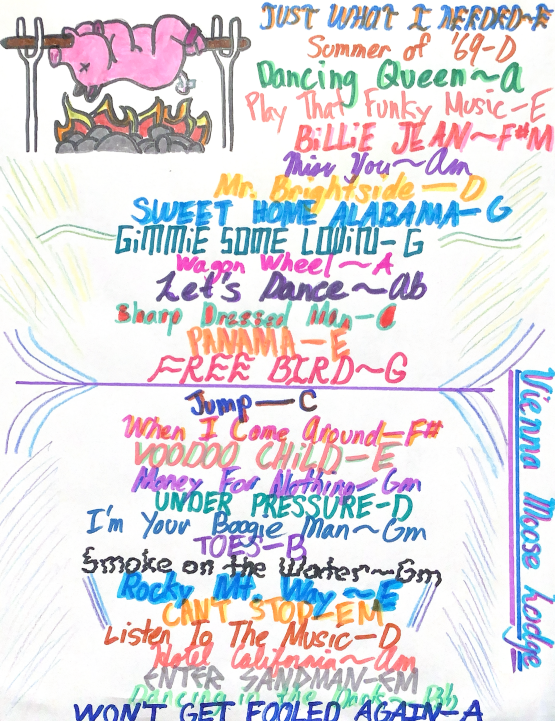 JUST WHAT I NEEDED-E
Summer of '69-D
Dancing Queen~a
Play That Funky Music-E
BiLLiE JEAN~F#M
Miss You~Am
Mr. Brightside-D
SWEET HOME ALABAMA-G
GiMMiE SOME LOVIN-G
Wagon Wheel~A
Let's Dance~Ab
Sharp Dressed Man-C
PANAMA-E
FREE BIRD~G
Jump-C
When I Come Around-F#
VOODOO CHiLD-E
Money For Nothing-Gm
UNDER PRESSURE-D
I'm Your Boogie Man~Gm
TOES-B
Smoke on the Water~Gm
Rocky Mt. Way~E
CAN'T STOP-EM
Listen To The Music-D
Hotel California~am
ENTER SANDMAN-EM
Dancing in the Dark-Bb
WON'T GET FOOLED AGAIN-A
Vienna Moose Lodge